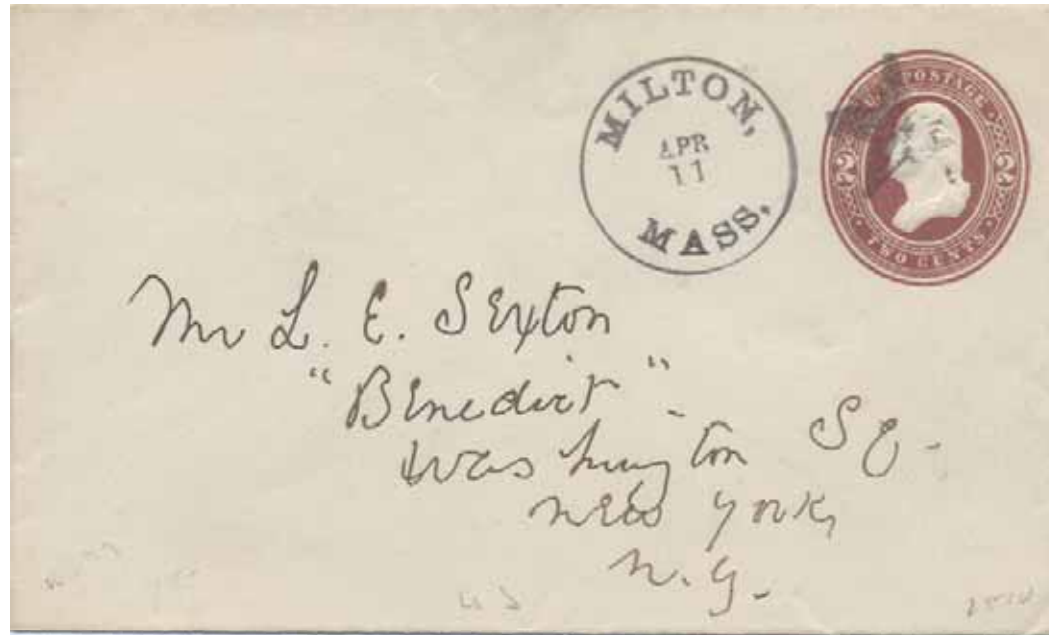 MILTON,
APR
11
MASS.
U.S. POSTAGE
2 2
TWO CENTS
Mr L. E. Sexton
"Benedict"
Washington Sq.
New York,
N.Y.